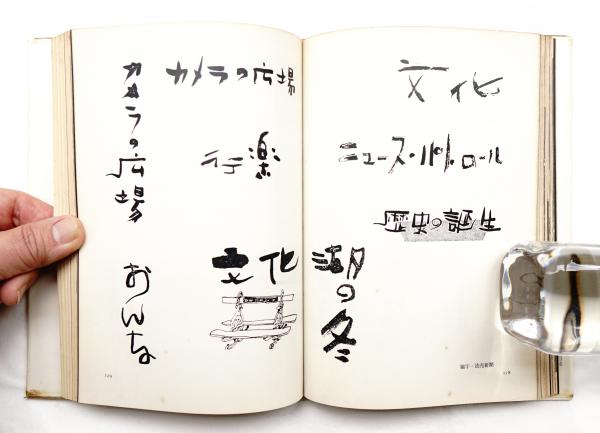 文化
ニュース・パトロール
歴史の誕生
湖の冬
題字・読売新聞
128
カメラの広場
行楽
文化
カメラの広場
おんな
129